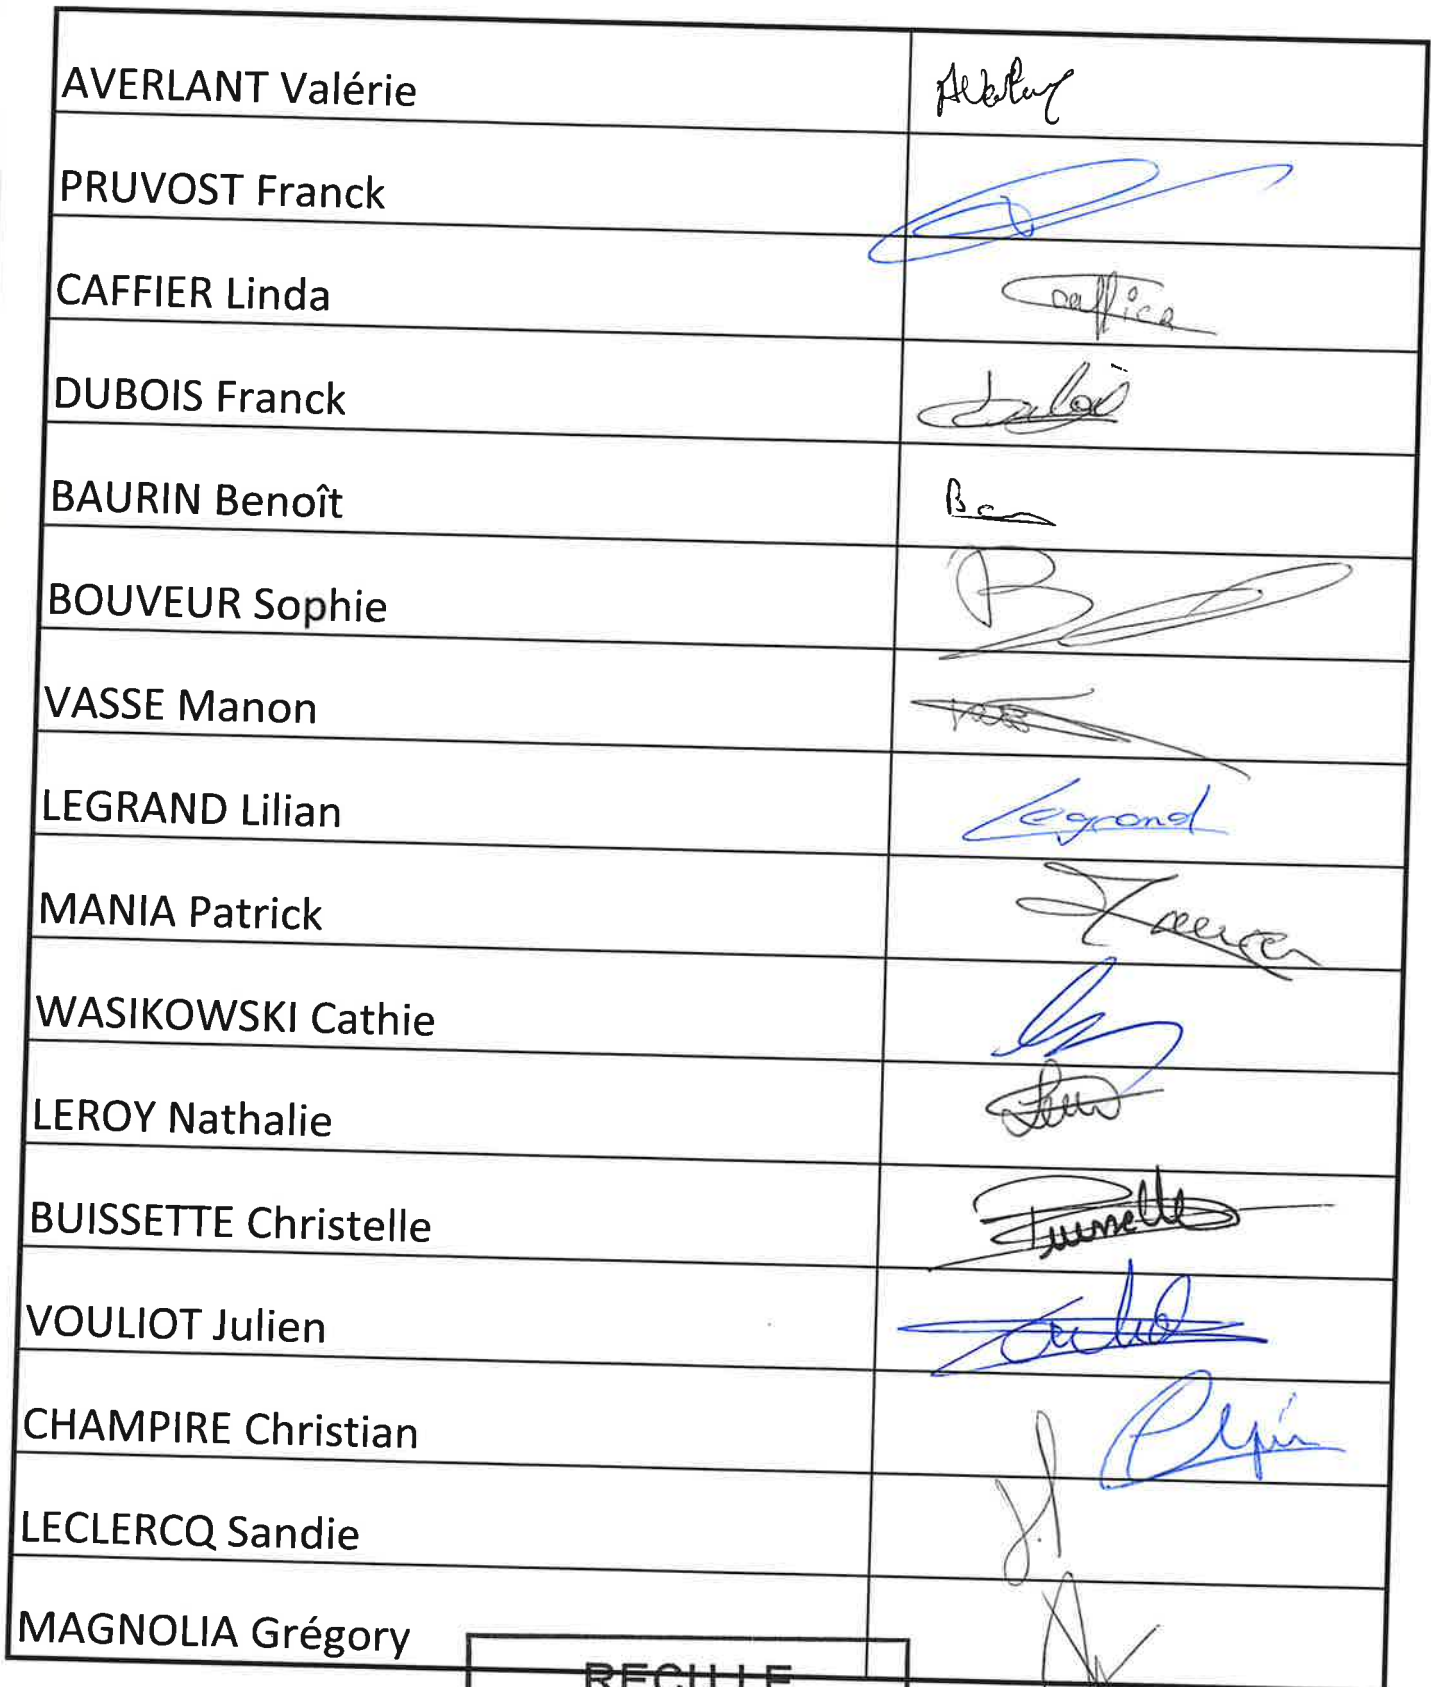 AVERLANT Valérie
PRUVOST Franck
CAFFIER Linda
DUBOIS Franck
BAURIN Benoît
BOUVEUR Sophie
VASSE Manon
LEGRAND Lilian Legrand
MANIA Patrick
WASIKOWSKI Cathie
LEROY Nathalie
BUISSETTE Christelle
VOULIOT Julien
CHAMPIRE Christian
LECLERCQ Sandie
MAGNOLIA Grégory
RECU LE